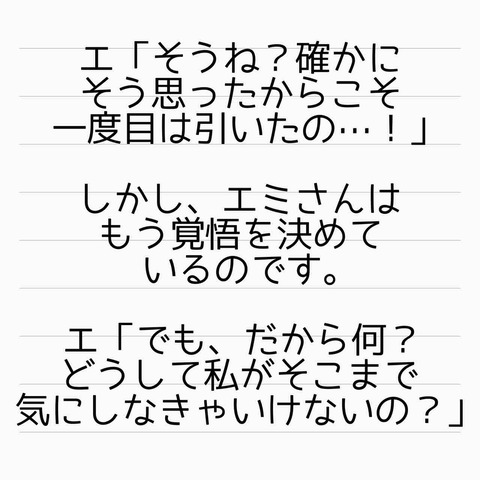 エ「そうね？確かに
そう思ったからこそ
一度目は引いたの…！」
しかし、エミさんは
もう覚悟を決めて
いるのです。
エ「でも、だから何？
どうして私がそこまで
気にしなきゃいけないの？」